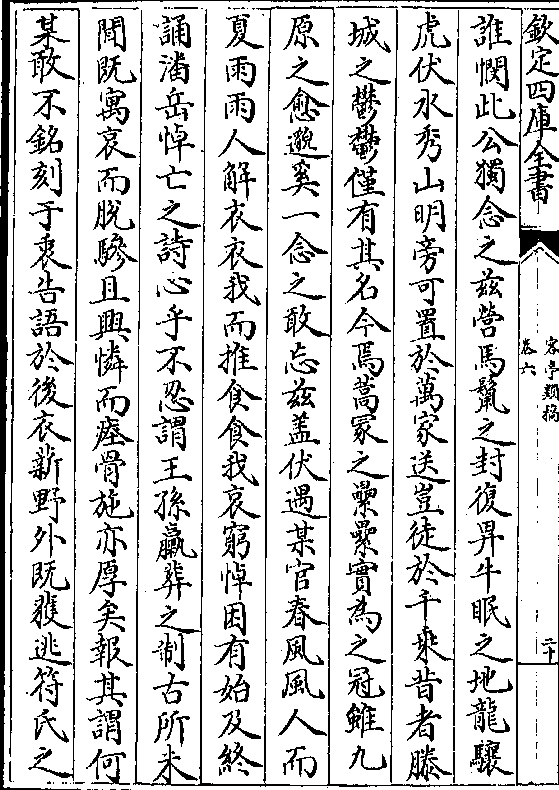 欽定四庫全書
客亭類稿
卷六
二十
誰憫此公獨念之茲營馬鬣之封復畀牛眠之地龍驤
虎伏水秀山明旁可置於萬家送豈徒於千乘昔者滕
城之鬱鬱僅有其名今焉蒿冢之纍纍實為之冠雖九
原之愈邈奚一念之敢忘茲盖伏遇某官春風風人而
夏雨雨人解衣衣我而推食食我哀窮悼困有始及終
誦潘岳悼亡之詩心乎不忍謂王孫贏葬之制古所未
聞既寓哀而脫驂且興憐而瘞骨施亦厚矣報其謂何
某敢不銘刻于衷告語於後衣薪野外既獲逃符氏之